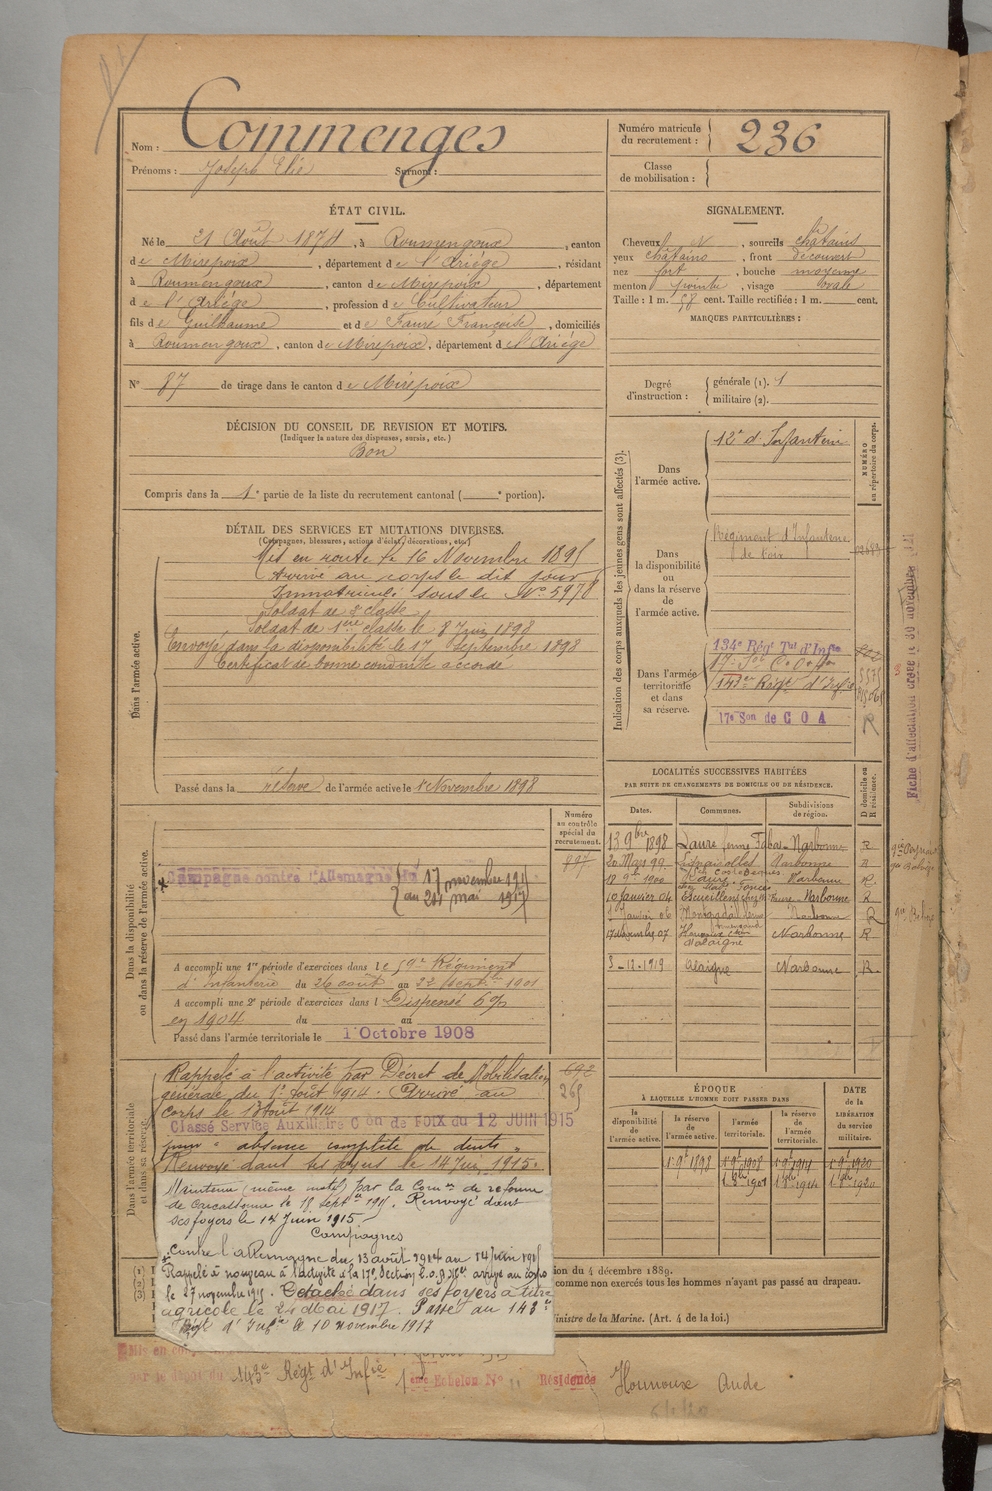 Nom : Commenges
Prénoms : Joseph Elie Surnom :
Numéro matricule du recrutement : 236
Classe de mobilisation :
ÉTAT CIVIL.
Né le 21 Août 1874, à Roumengoux, canton
de Mirepoix, département de l'Ariège, résidant
à Roumengoux, canton de Mirepoix, département
de l'Ariège, profession de Cultivateur
fils de Guilhaume et de Faure Françoise, domiciliés
à Roumengoux, canton de Mirepoix, département de l'Ariège
N° 87 de tirage dans le canton de Mirepoix
SIGNALEMENT.
Cheveux N, sourcils châtains
yeux châtains, front découvert
nez fort, bouche moyenne
menton pointu, visage ovale
Taille : 1 m. 58 cent. Taille rectifiée : 1 m. cent.
MARQUES PARTICULIÈRES :
Degré d'instruction : générale (1). 1
militaire (2).
DÉCISION DU CONSEIL DE REVISION ET MOTIFS.
(Indiquer la nature des dispenses, sursis, etc.)
Bon
Compris dans la 1e partie de la liste du recrutement cantonal ( e portion).
DÉTAIL DES SERVICES ET MUTATIONS DIVERSES.
(Campagnes, blessures, actions d'éclat, décorations, etc.)
Dans l'armée active.
Mis en route le 16 Novembre 1895
Arrivé au corps le dit jour
Immatriculé sous le N° 5978
Soldat de 2e classe
Soldat de 1ère classe le 8 Juin 1898
Envoyé dans la disponibilité le 17 Septembre 1898
Certificat de bonne conduite accordé
Passé dans la réserve de l'armée active le 1er Novembre 1898
Indication des corps auxquels les jeunes gens sont affectés (3).
NUMÉRO au répertoire du corps.
Dans l'armée active.
12e d'Infanterie
Dans la disponibilité ou dans la réserve de l'armée active.
Régiment d'Infanterie
de Foix
Dans l'armée territoriale et dans sa réserve.
134e Régt Tal d'Infie
17e Son C.O.A
143e Régt d'Infie
17e Son de C O A
R
Fiche d'affectation créée le 30 novembre 1921
LOCALITÉS SUCCESSIVES HABITÉES
PAR SUITE DE CHANGEMENTS DE DOMICILE OU DE RÉSIDENCE.
Dates. Communes. Subdivisions de région. D domicile ou R résidence.
13 9bre 1898 Laure Narbonne R
20 Mars 99 Narbonne
1900 Narbonne R
10 Janvier 04 Escueillens Narbonne R
Janvier 06 Narbonne R
17 Novembre 07 Hounoux Alaigne Narbonne R
3-12-1919 Alaigne Narbonne R
Dans la disponibilité ou dans la réserve de l'armée active.
Numéro au contrôle spécial du recrutement.
897
Campagne contre l'Allemagne du 17 novembre 1915
au 24 mai 1917
A accompli une 1re période d'exercices dans le 59e Régiment
d'Infanterie du 26 août au 22 Septbre 1901
A accompli une 2e période d'exercices dans l Dispensé 6%
en 1904 du au
Passé dans l'armée territoriale le 1 Octobre 1908
Dans l'armée territoriale et dans sa réserve.
Rappelé à l'activité par Décret de Mobilisation
générale du 1er Août 1914. Arrivé au
corps le 13 août 1914
692
265
Classé Service Auxiliaire Con de FOIX du 12 JUIN 1915
pour "absence complète de dents"
Renvoyé dans ses foyers le 14 Juin 1915.
Maintenu (même motif) par la Comon de réforme
de Carcassonne le 18 septbre 1915. Renvoyé dans
ses foyers le 14 Juin 1915
Campagnes
Contre l'Allemagne du 13 août 1914 au 14 juin 1915
Rappelé à nouveau à l'activité à la 17e Section C.O.A. arrivé au corps
le 27 novembre 1915. Détaché dans ses foyers à titre
agricole le 24 Mai 1917. Passé au 143e
Régt d'Infie le 10 novembre 1917
ÉPOQUE
À LAQUELLE L'HOMME DOIT PASSER DANS
la disponibilité de l'armée active. la réserve de l'armée active. l'armée territoriale. la réserve de l'armée territoriale.
DATE de la LIBÉRATION du service militaire.
1er 9bre 1898 1er 9bre 1908 1er 9bre 1914 1er 9bre 1920
ion du 4 décembre 1889.
comme non exercés tous les hommes n'ayant pas passé au drapeau.
inistre de la Marine. (Art. 4 de la loi.)
Mis en
par le dépôt du 143e Régt d'Infie
1er Echelon N° Résidence Hounoux Aude